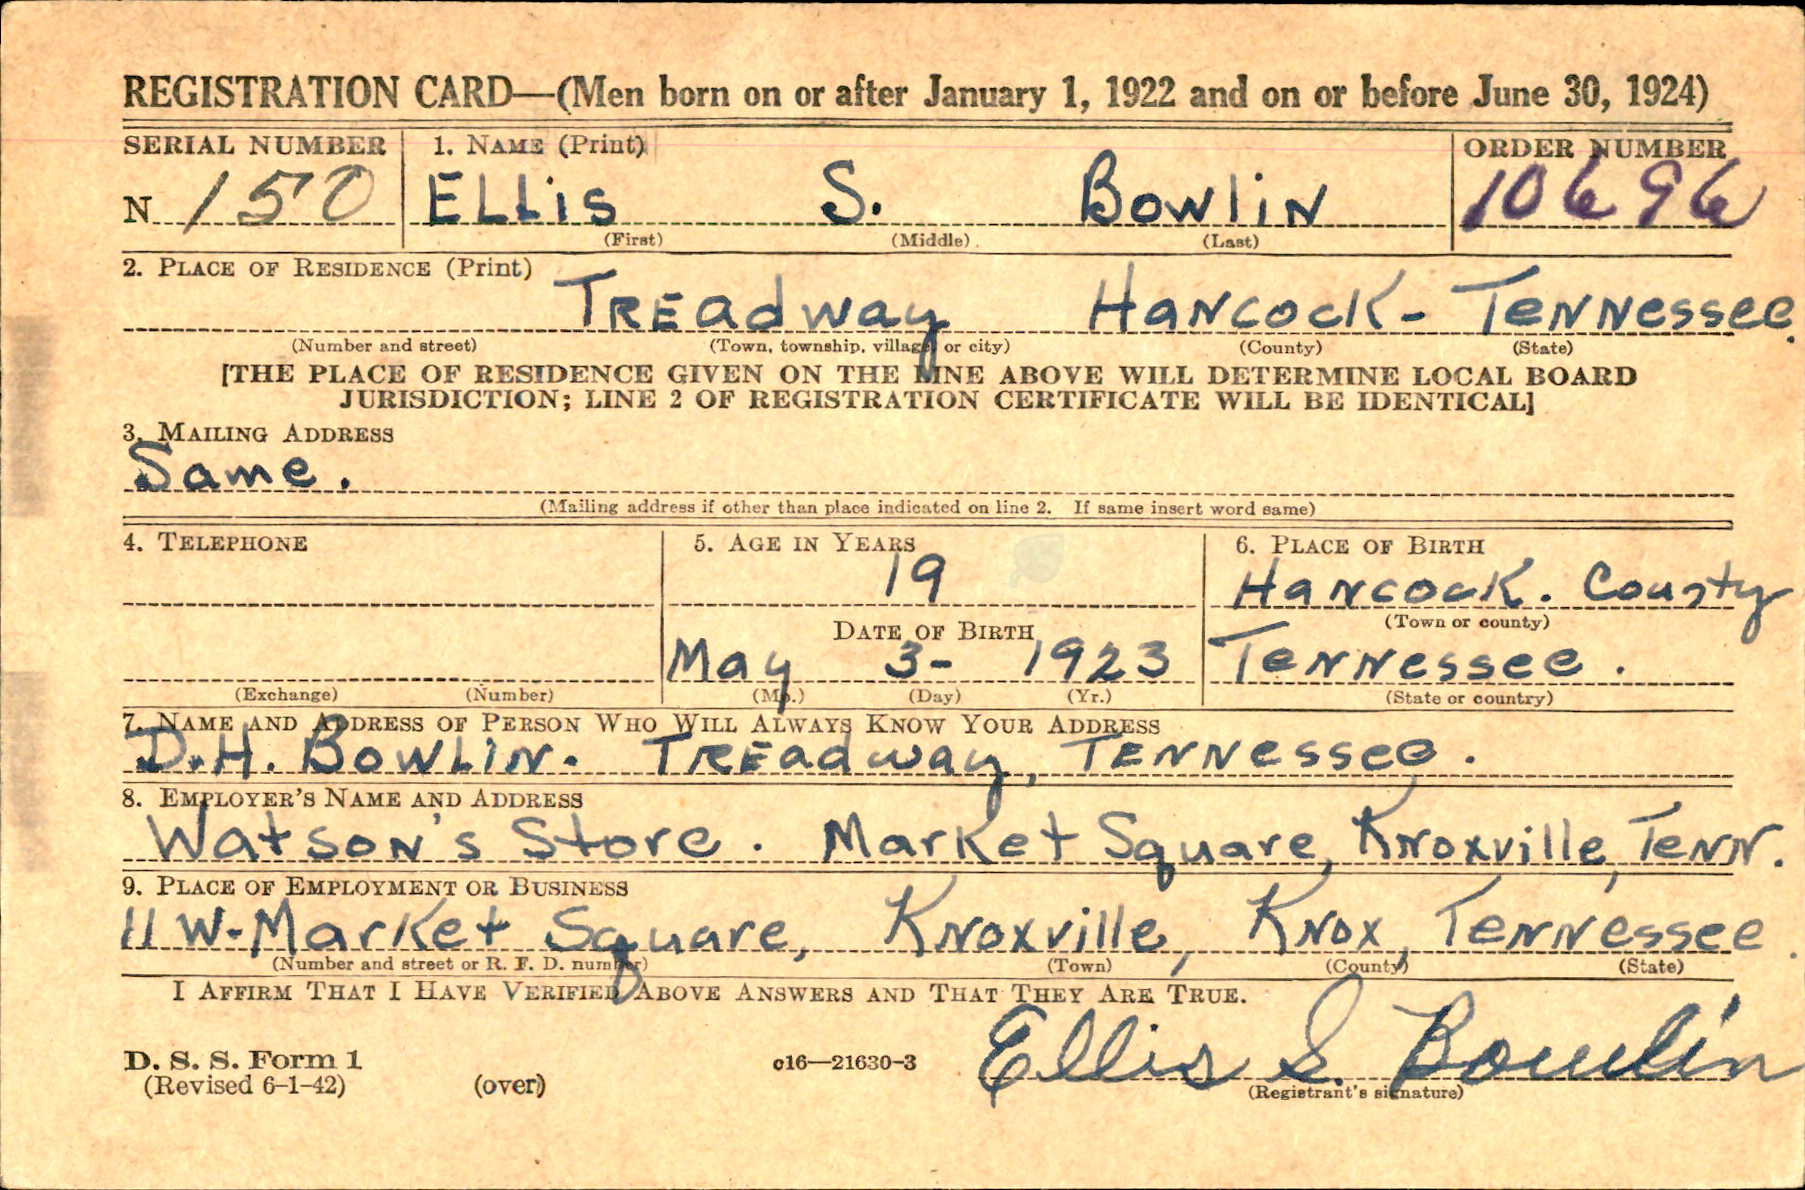 REGISTRATION CARD—(Men born on or after January 1, 1922 and on or before June 30, 1924)
SERIAL NUMBER 1. NAME (Print) ORDER NUMBER
N 150 ELLiS S. BowliN 10696
(First) (Middle) (Last)
2. PLACE OF RESIDENCE (Print)
TREadway HaNcock - TeNNessee.
(Number and street) (Town, township, village, or city) (County) (State)
[THE PLACE OF RESIDENCE GIVEN ON THE LINE ABOVE WILL DETERMINE LOCAL BOARD
JURISDICTION; LINE 2 OF REGISTRATION CERTIFICATE WILL BE IDENTICAL]
3. MAILING ADDRESS
Same.
(Mailing address if other than place indicated on line 2. If same insert word same)
4. TELEPHONE 5. AGE IN YEARS 6. PLACE OF BIRTH
19 HaNcock. County
(Town or county)
DATE OF BIRTH
May 3- 1923 TeNNessee.
(Exchange) (Number) (Mo.) (Day) (Yr.) (State or country)
7. NAME AND ADDRESS OF PERSON WHO WILL ALWAYS KNOW YOUR ADDRESS
D.H. BOWLIN. TREadway, TENNessee.
8. EMPLOYER'S NAME AND ADDRESS
WatSON's Store. Market Square, KNoxville, TeNN.
9. PLACE OF EMPLOYMENT OR BUSINESS
11 W-Market Square, KNoxville, KNox, TeNNessee.
(Number and street or R. F. D. number) (Town) (County) (State)
I AFFIRM THAT I HAVE VERIFIED ABOVE ANSWERS AND THAT THEY ARE TRUE.
Ellis S. Bowlin
D. S. S. Form 1 c16—21630-3
(Revised 6-1-42) (over) (Registrant's signature)